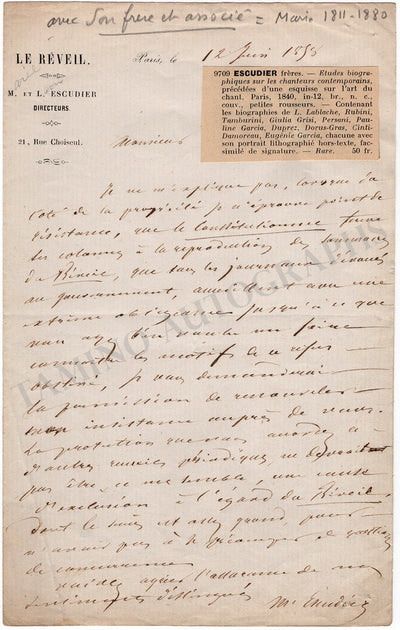 avec Son frere et associé = Marie 1811-1880
LE RÉVEIL.
Paris, le 12 Juin 1858
M. ET L. ESCUDIER
DIRECTEURS.
21, RUE Choiseul.
9709 ESCUDIER frères. — Etudes biogra-
phiques sur les chanteurs contemporains,
précédées d'une esquisse sur l'art du
chant. Paris, 1840, in-12, br., n. c.,
couv., petites rousseurs. — Contenant
les biographies de L. Lablache, Rubini,
Tamburini, Giulia Grisi, Persani, Pau-
line Garcia, Duprez, Dorus-Gras, Cinti-
Damoreau, Eugénie Garcia, chacune avec
son portrait lithographié hors-texte, fac-
similé de signature. — Rare. 50 fr.
Monsieur
Je ne m'explique pas, lorsque du
coté de la propriété je n'éprouve point de
résistance, que le Constitutionnel ferme
ses colonnes à la reproduction des sommaires
du Réveil, que tous les journaux dévoués
au gouvernement, accueillent avec une
extrême obligeance jusqu'à ce que
vous ayez bien voulu me faire
connaitre les motifs de ce refus
obstiné, je vous demanderai
la permission de renouveler
mon insistance auprès de vous.
La protection que vous accordez à
d'autres revues périodiques, ne devrait
pas être, ce me semble, une cause
d'exclusion à l'égard du Réveil
dont le succès est assez grand, pour
n'avoir pas à se préoccuper de questions
de concurrence
Veuillez agréer l'assurance de mes
sentiments distingués
M. Escudier
TAMINO AUTOGRAPHS